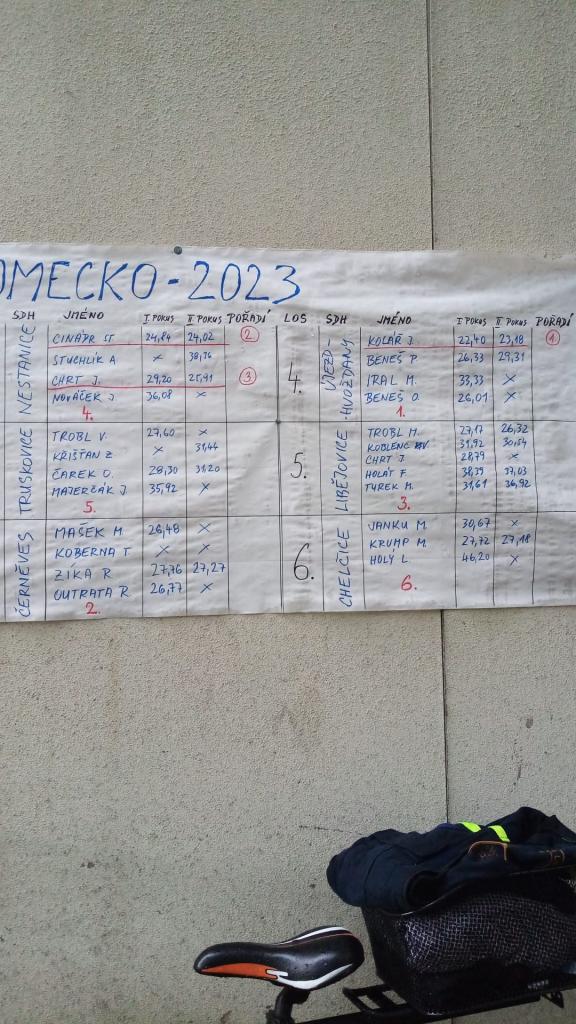 OMECKO - 2023
SDH JMÉNO I POKUS II POKUS POŘADÍ LOS SDH JMÉNO I POKUS II POKUS POŘADÍ
NESTANICE
CINÁDR ST 24,84 24,02 2
STUCHLÍK A × 38,76
CHRT J. 29,20 25,91 3
NOVÁČEK J 36,08 ×
4.
4.
ÚJEZD-
-HVOŽĎANY
KOLÁŘ J. 23,18 1.
BENEŠ P 26,33 29,31
IRAL M. 33,33 ×
BENEŠ O. 26,01 ×
1.
TRUSKOVICE
TROBL V. 27,60 ×
KŘIŠŤAN Z × 31,44
ČAREK O. 28,30 31,20
MAJERČÁK J. 35,92 ×
5.
5.
LIBĚJOVICE
TROBL M. 27,17 26,32
31,92 30,54
CHRT J 28,79 ×
HOLÁT F. 38,39 37,03
TUREK M. 31,61 36,92
3.
ČERNĚVES
MAŠEK M 26,48 ×
KOBERNA T × ×
ZÍKA R 27,76 27,27
OUTRATA R 26,77 ×
2.
6.
CHELČICE
JANKU M. 30,67 ×
KRUMP M. 27,72 27,18
HOLÝ L 46,20 ×
6.